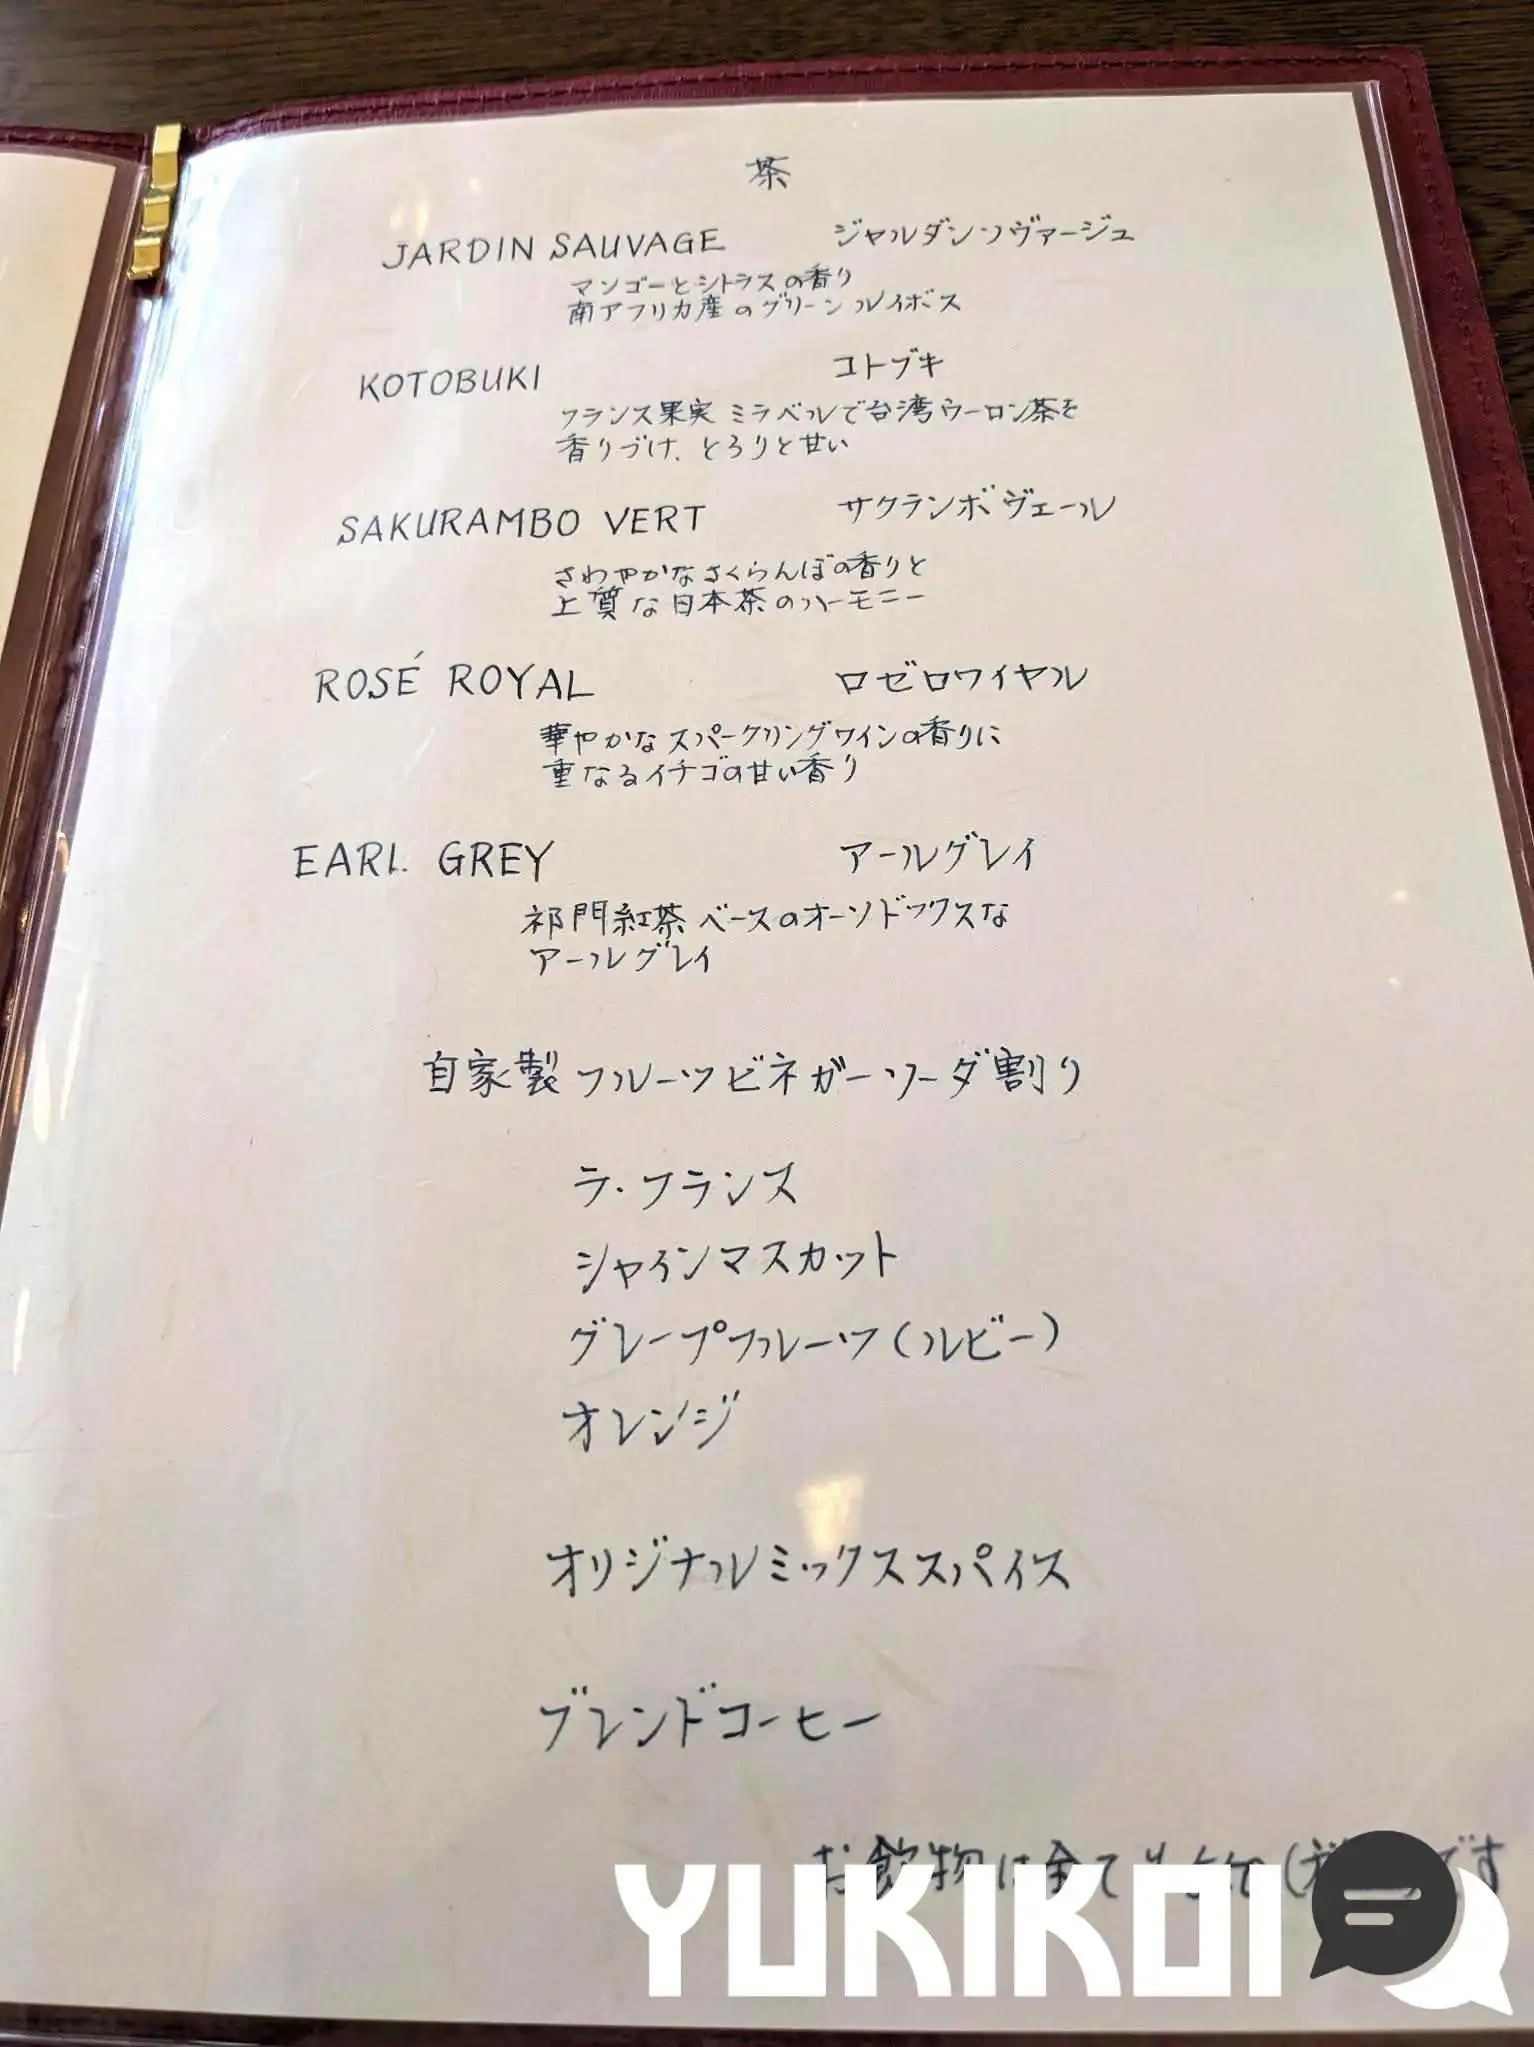 茶
JARDIN SAUVAGE ジャルダンソヴァージュ
マンゴーとシトラスの香り
南アフリカ産のグリーンルイボス
KOTOBUKI コトブキ
フランス果実ミラベルで台湾ウーロン茶を
香りづけ、とろりと甘い
SAKURAMBO VERT サクランボヴェール
さわやかなさくらんぼの香りと
上質な日本茶のハーモニー
ROSÉ ROYAL ロゼロワイヤル
華やかなスパークリングワインの香りに
重なるイチゴの甘い香り
EARL GREY アールグレイ
祁門紅茶ベースのオーソドックスな
アールグレイ
自家製フルーツビネガーソーダ割り
ラ・フランス
シャインマスカット
グレープフルーツ(ルビー)
オレンジ
オリジナルミックススパイス
ブレンドコーヒー
お飲物は全て です
YUKIKOI